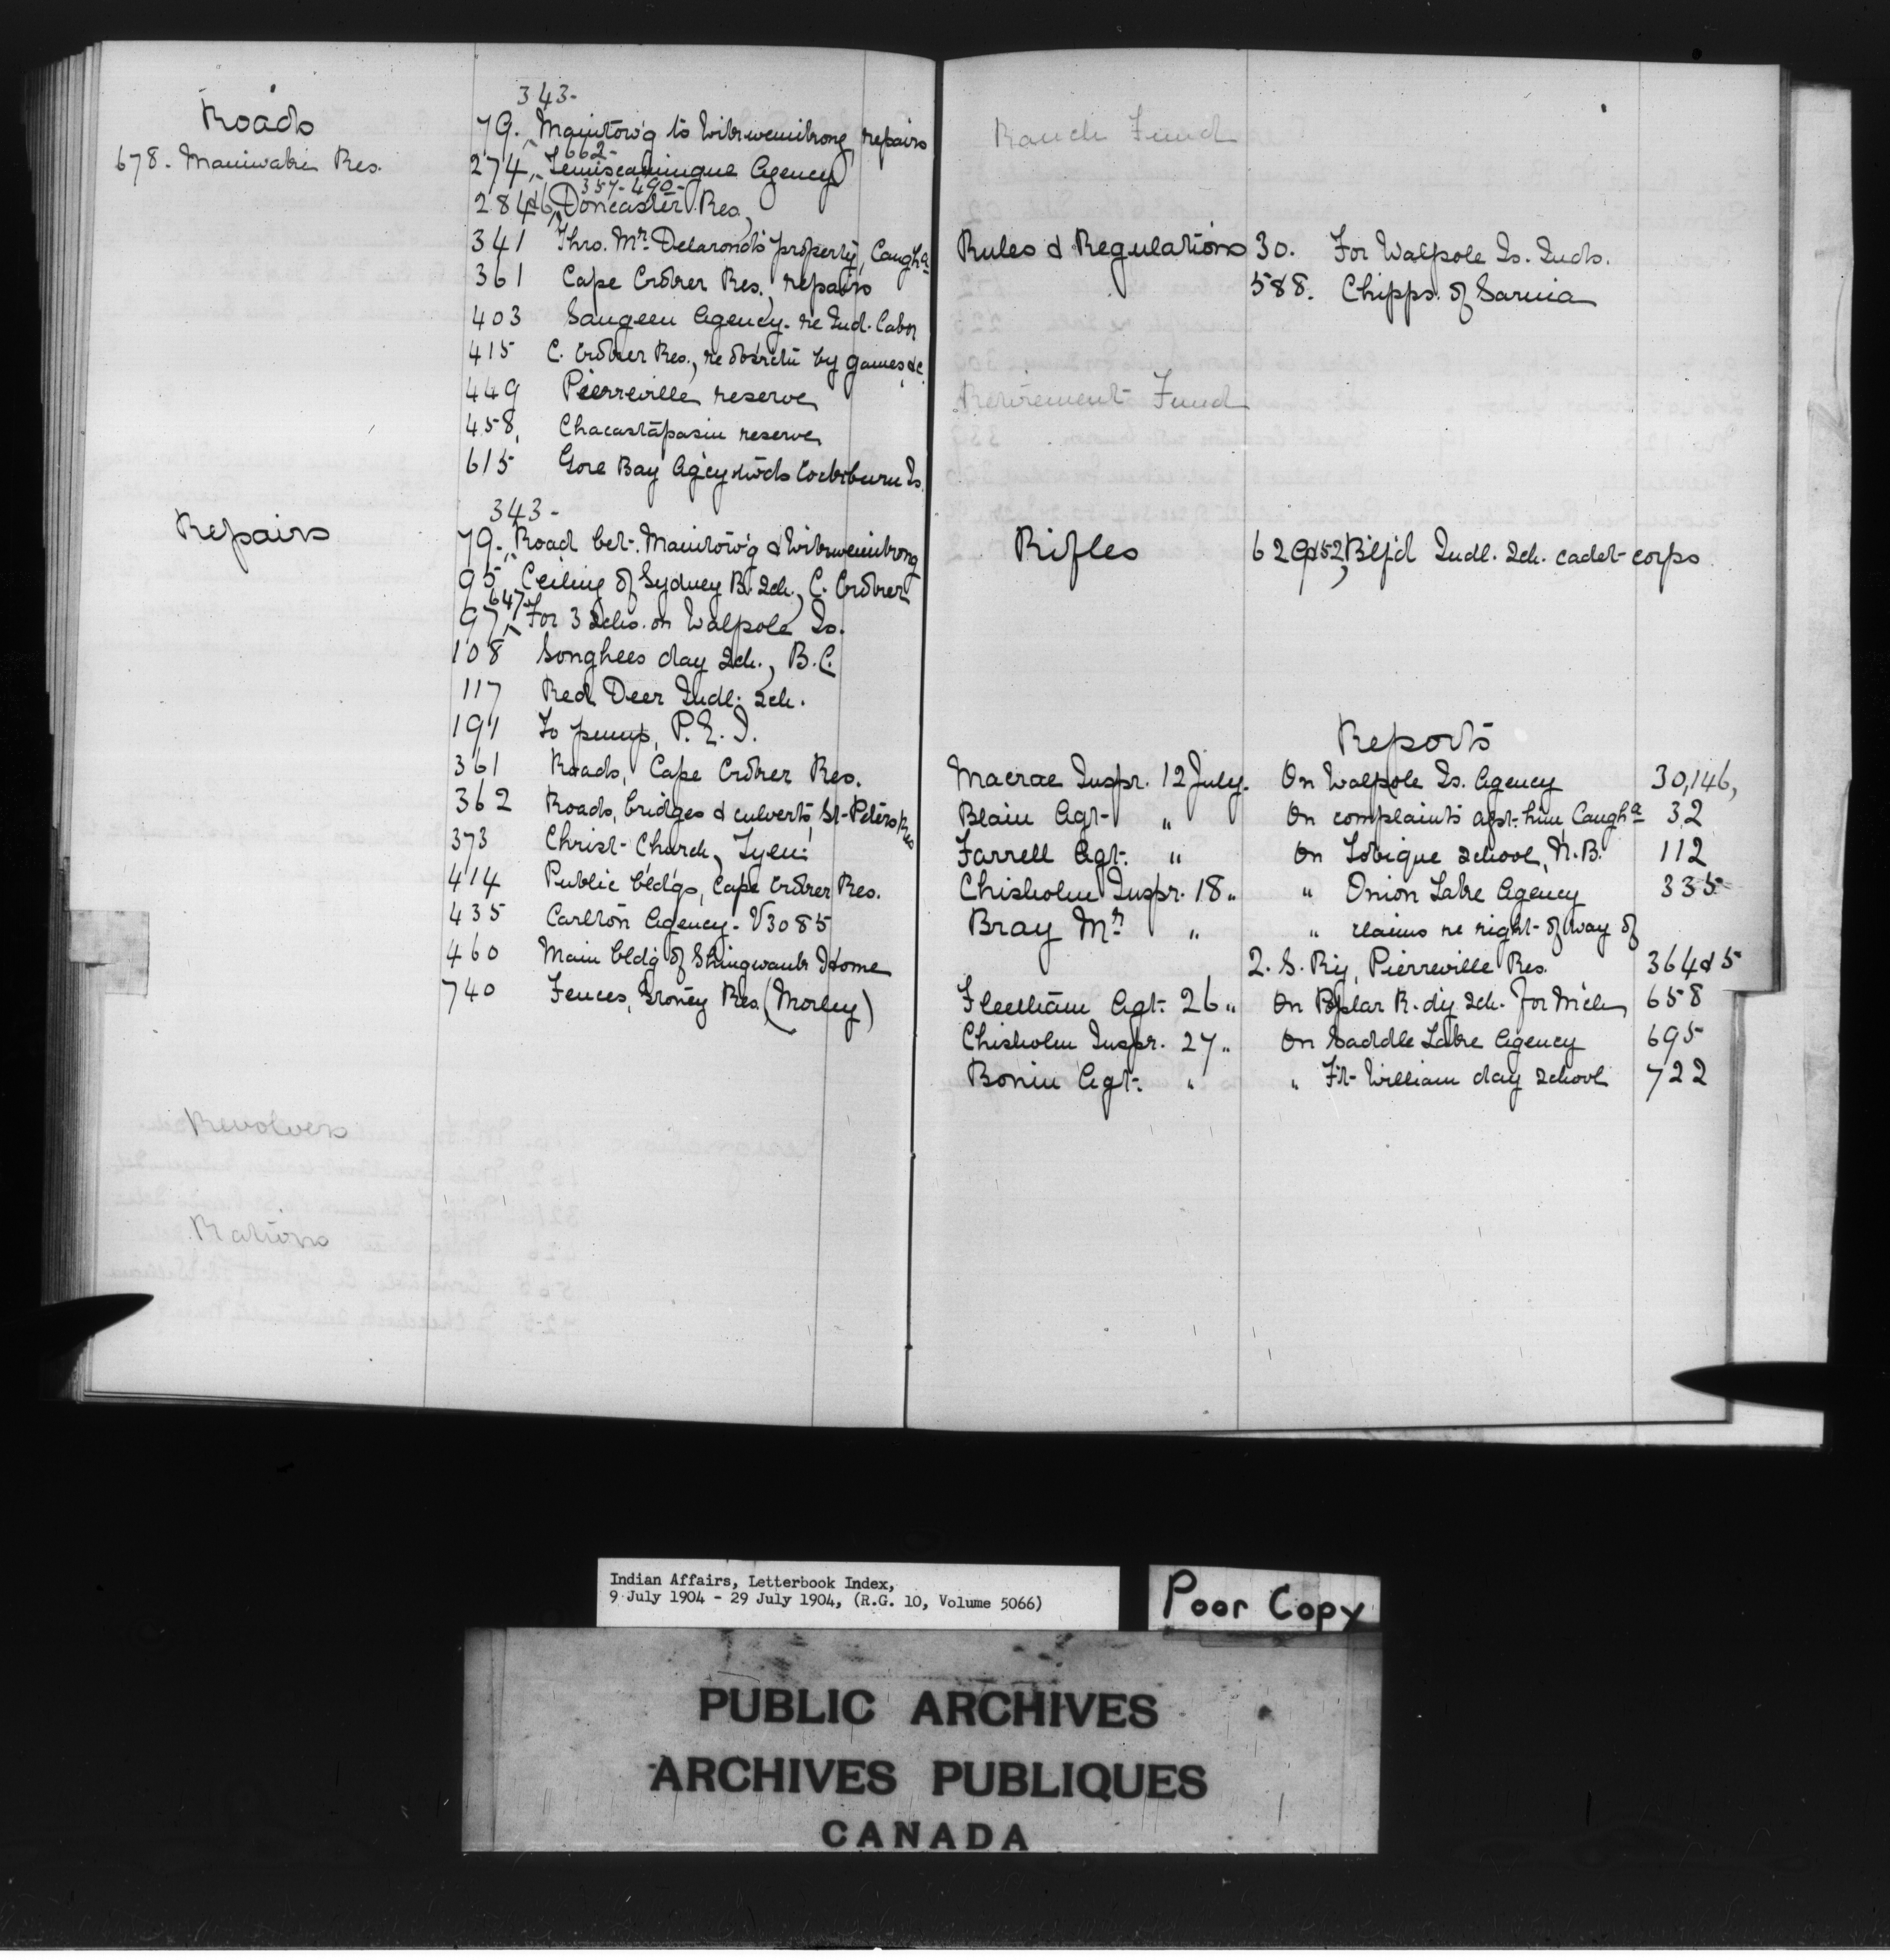 343-
Roads
79. Manitow'g to Wikwemikong, repairs
678. Maniwaki Res.
662-
274, Temiscamingue Agency
357-490-
284&6, Doncaster Res.
341 Thro. Mr. Delaronde's property, Caugha
361 Cape Croker Res., repairs
403 Saugeen Agency. re Ind. labor
415 C. Croker Res., re obstrctn by games, &c.
449 Pierreville reserve
458, Chacastapasin reserve
615 Gore Bay Ag'cy Cockburn Is.
343-
Repairs
79., Road bet. Manitow'g & Wikwemikong
95 Ceiling of Sydney B. Sch., C. Croker
647
97, For 3 Schs. on Walpole Is.
108 Songhees day Sch., B.C.
117 Red Deer Indl. Sch.
191 To pump, P.E.I.
361 Roads, Cape Croker Res.
362 Roads, bridges & culverts, St-Peters Res
373 Christ Church,
414 Public bldgs, Cape Croker Res.
435 Carlton Agency. V3085
460 Main bldg of Shingwauk Home
740 Fences, Stoney Res. (Morley)
Revolvers
Rations
Ranch Fund
Rules & Regulations 30. For Walpole Is. Inds.
588. Chipps. of Sarnia
Retirement Fund
Rifles
Indl. Sch. cadet-corps
Reports
Macrae Inspr. 12 July. On Walpole Is. Agency 30,146,
Blain Agt. " On complaints agst. him, Caugha 32
Farrell Agt. " On Tobique School, N.B. 112
Chisholm Inspr. 18 " " Onion Lake Agency 335
Bray Mr. " " claims re right-of way of
Q. S. Ry, Pierreville Res. 364&5
Agt. 26 " On Poplar R. dy Sch. for 658
Chisholm Inspr. 27 " On Saddle Lake Agency 695
Bonin Agt. " " Ft-William day School 722
Indian Affairs, Letterbook Index,
9 July 1904 - 29 July 1904, (R.G. 10, Volume 5066)
Poor Copy
PUBLIC ARCHIVES
ARCHIVES PUBLIQUES
CANADA